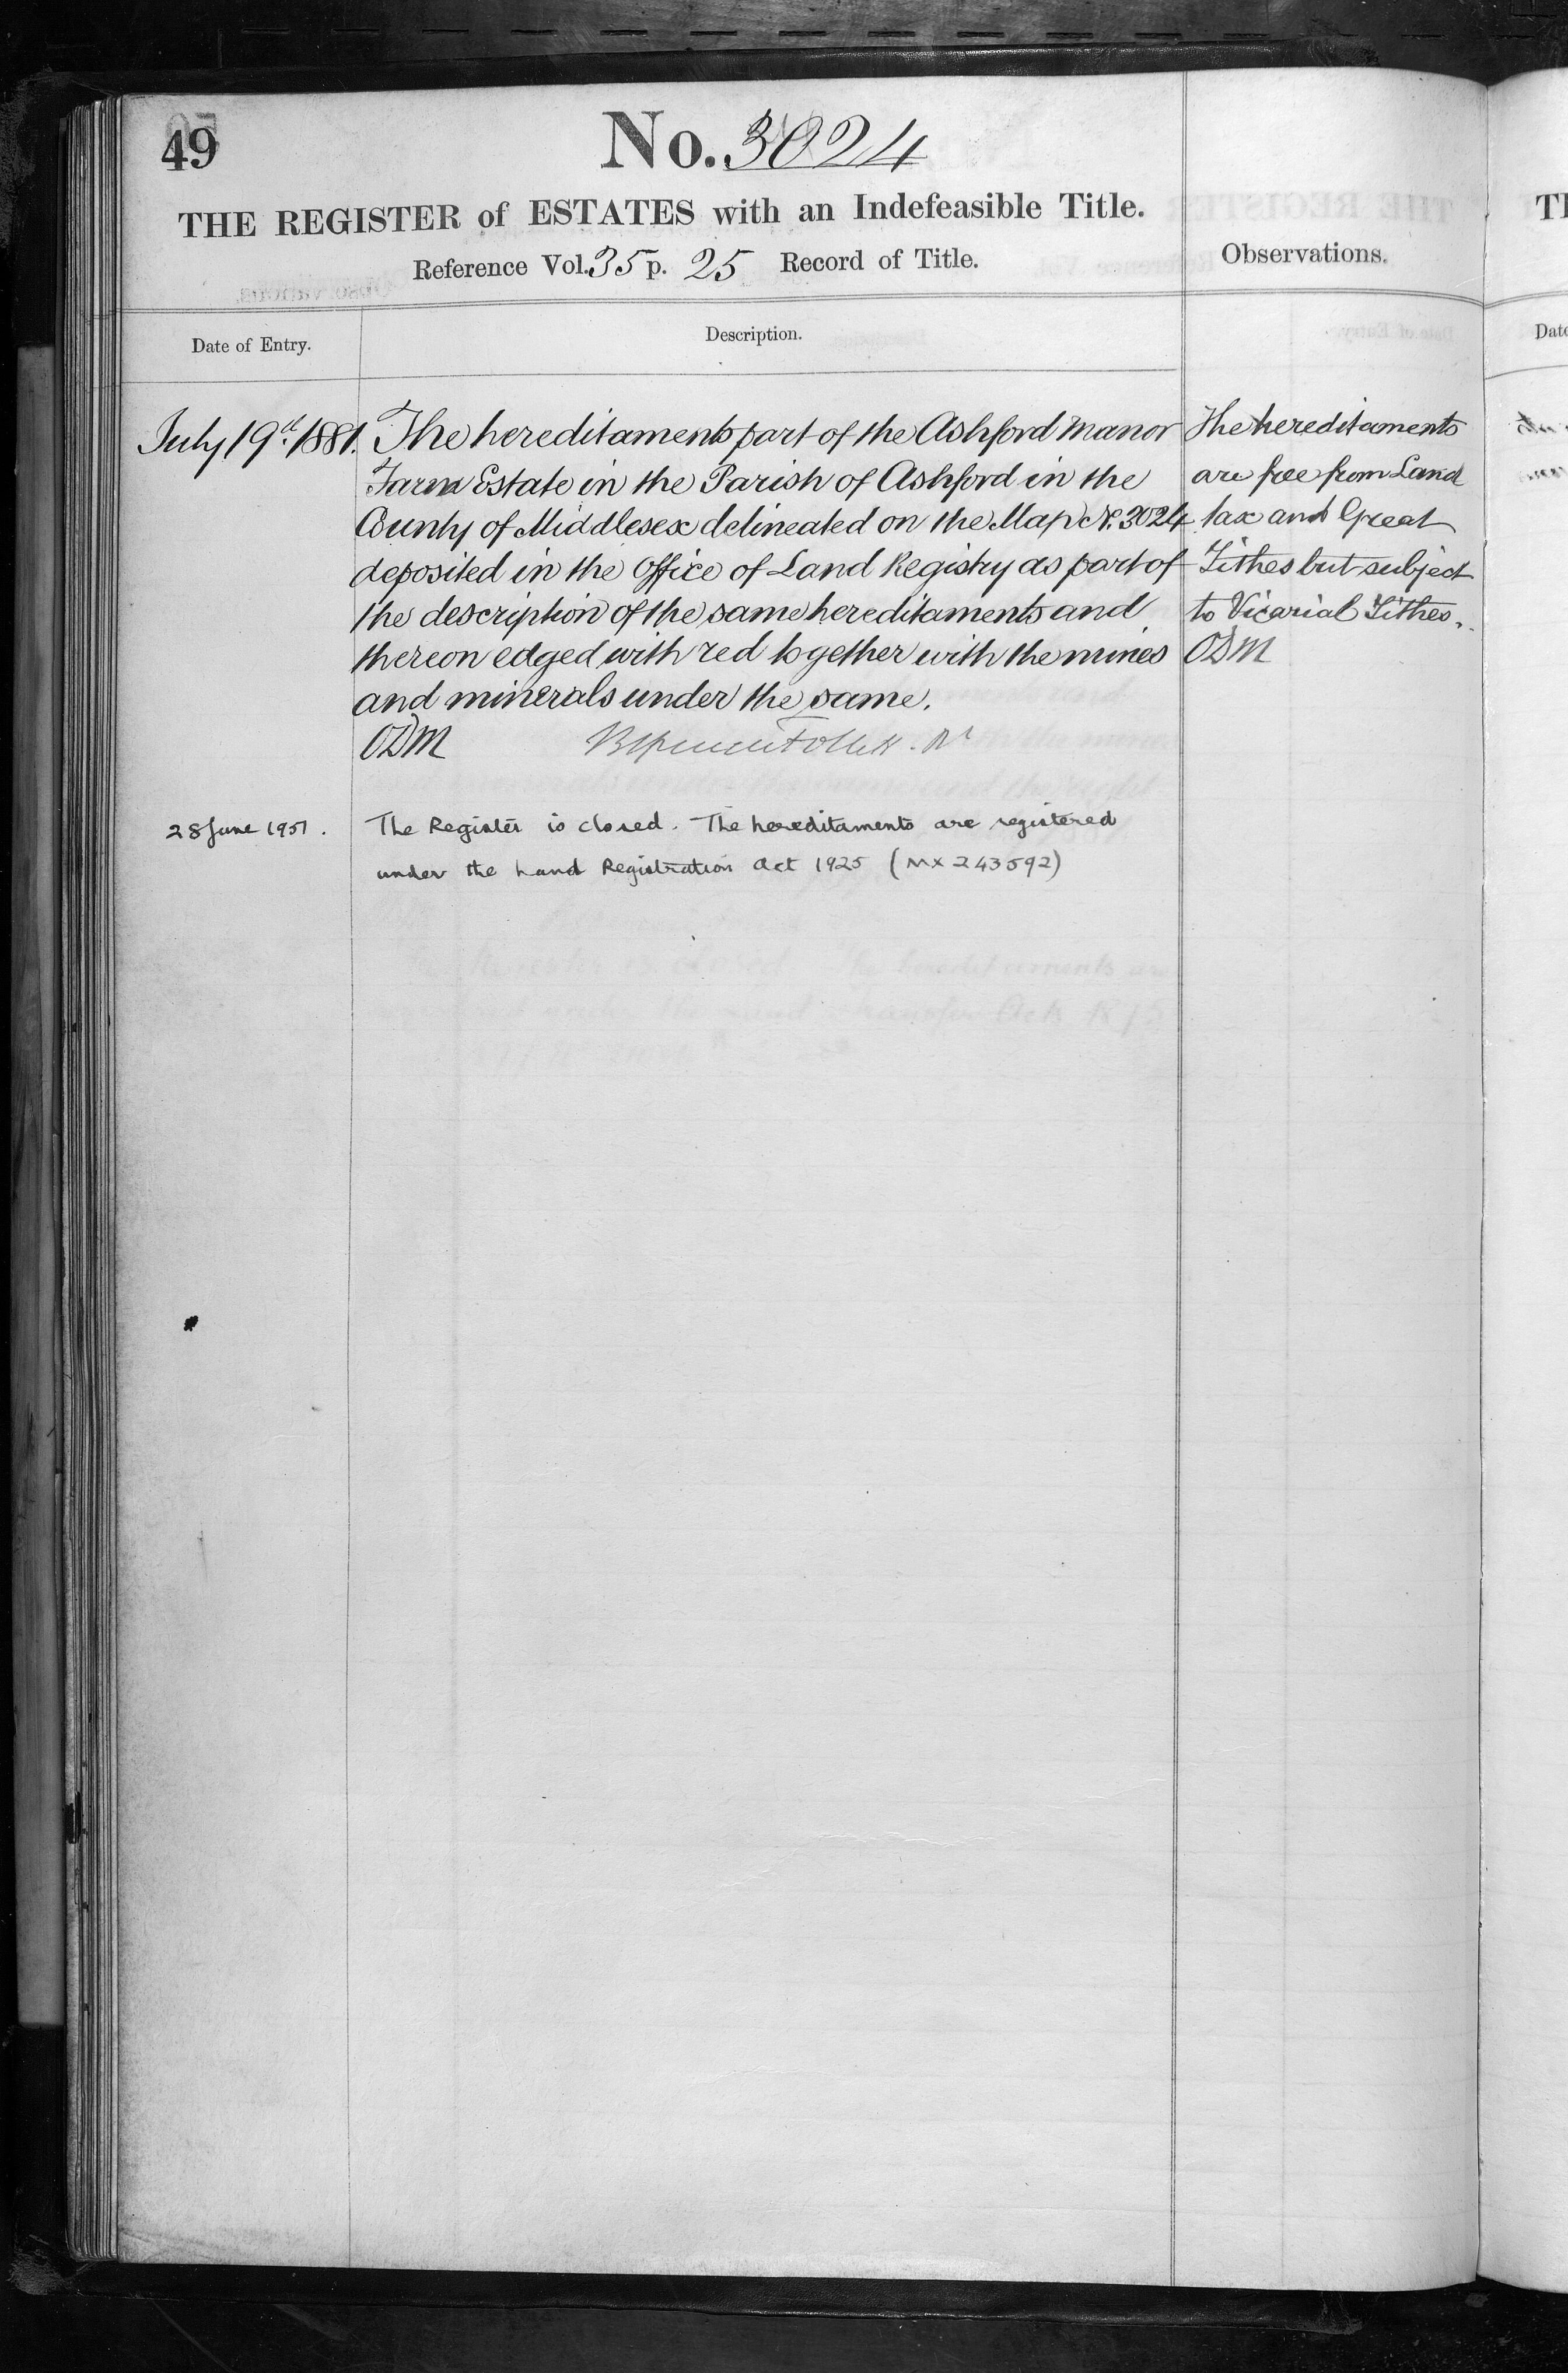 49
No. 3024
THE REGISTER of ESTATES with an Indefeasible Title.
Reference Vol. 35 p. 25 Record of Title.
Observations.
Date of Entry.
Description.
July 19th 1881. The hereditaments part of the Ashford Manor
Farm Estate in the Parish of Ashford in the
County of Middlesex delineated on the Map No. 3024
deposited in the Office of Land Registry as part of
the description of the same hereditaments and
thereon edged with red together with the mines
and minerals under the same.
ODM
The hereditaments
are free from Land
tax and Great
Tithes but subject
to Vicarial Tithes.
ODM
28 June 1951. The Register is closed. The hereditaments are registered
under the Land Registration Act 1925 (MX 243592)